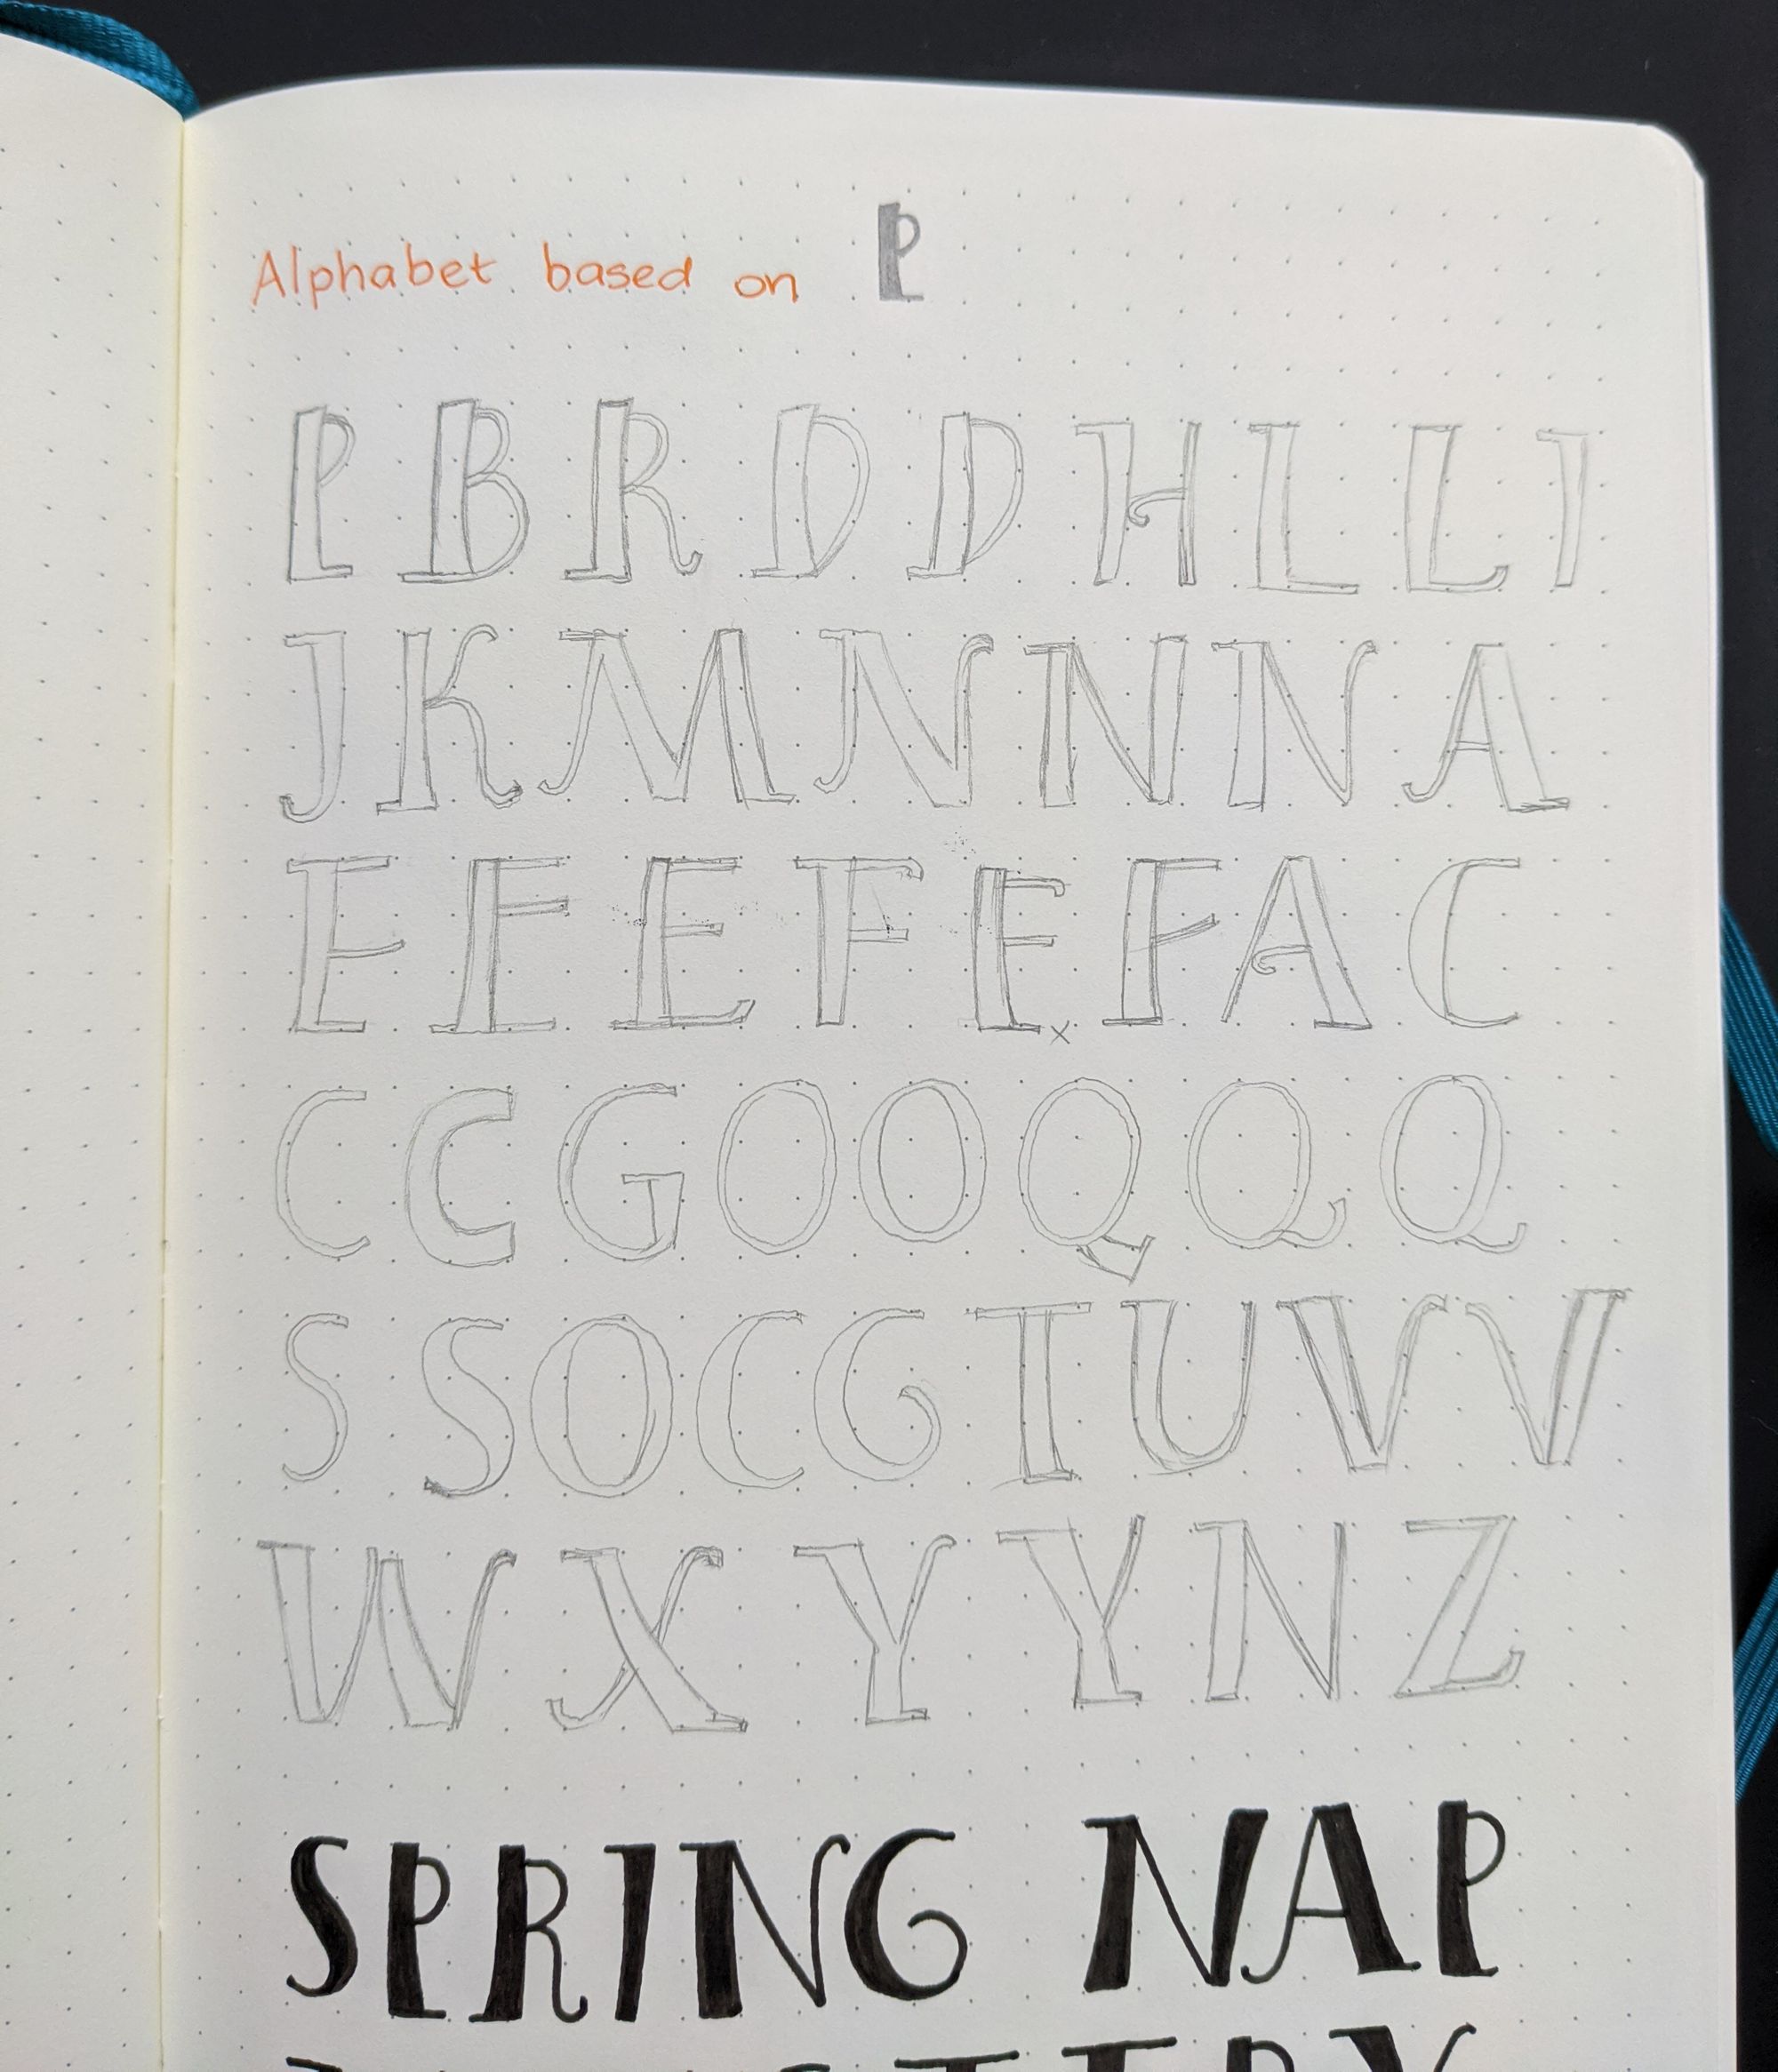 Alphabet based on P
P B R D D H L L I
J K M N N N A
E E E F F F A C
C C G O O Q Q Q
S S O C G T U V V
W X Y Y N Z
SPRING NAP